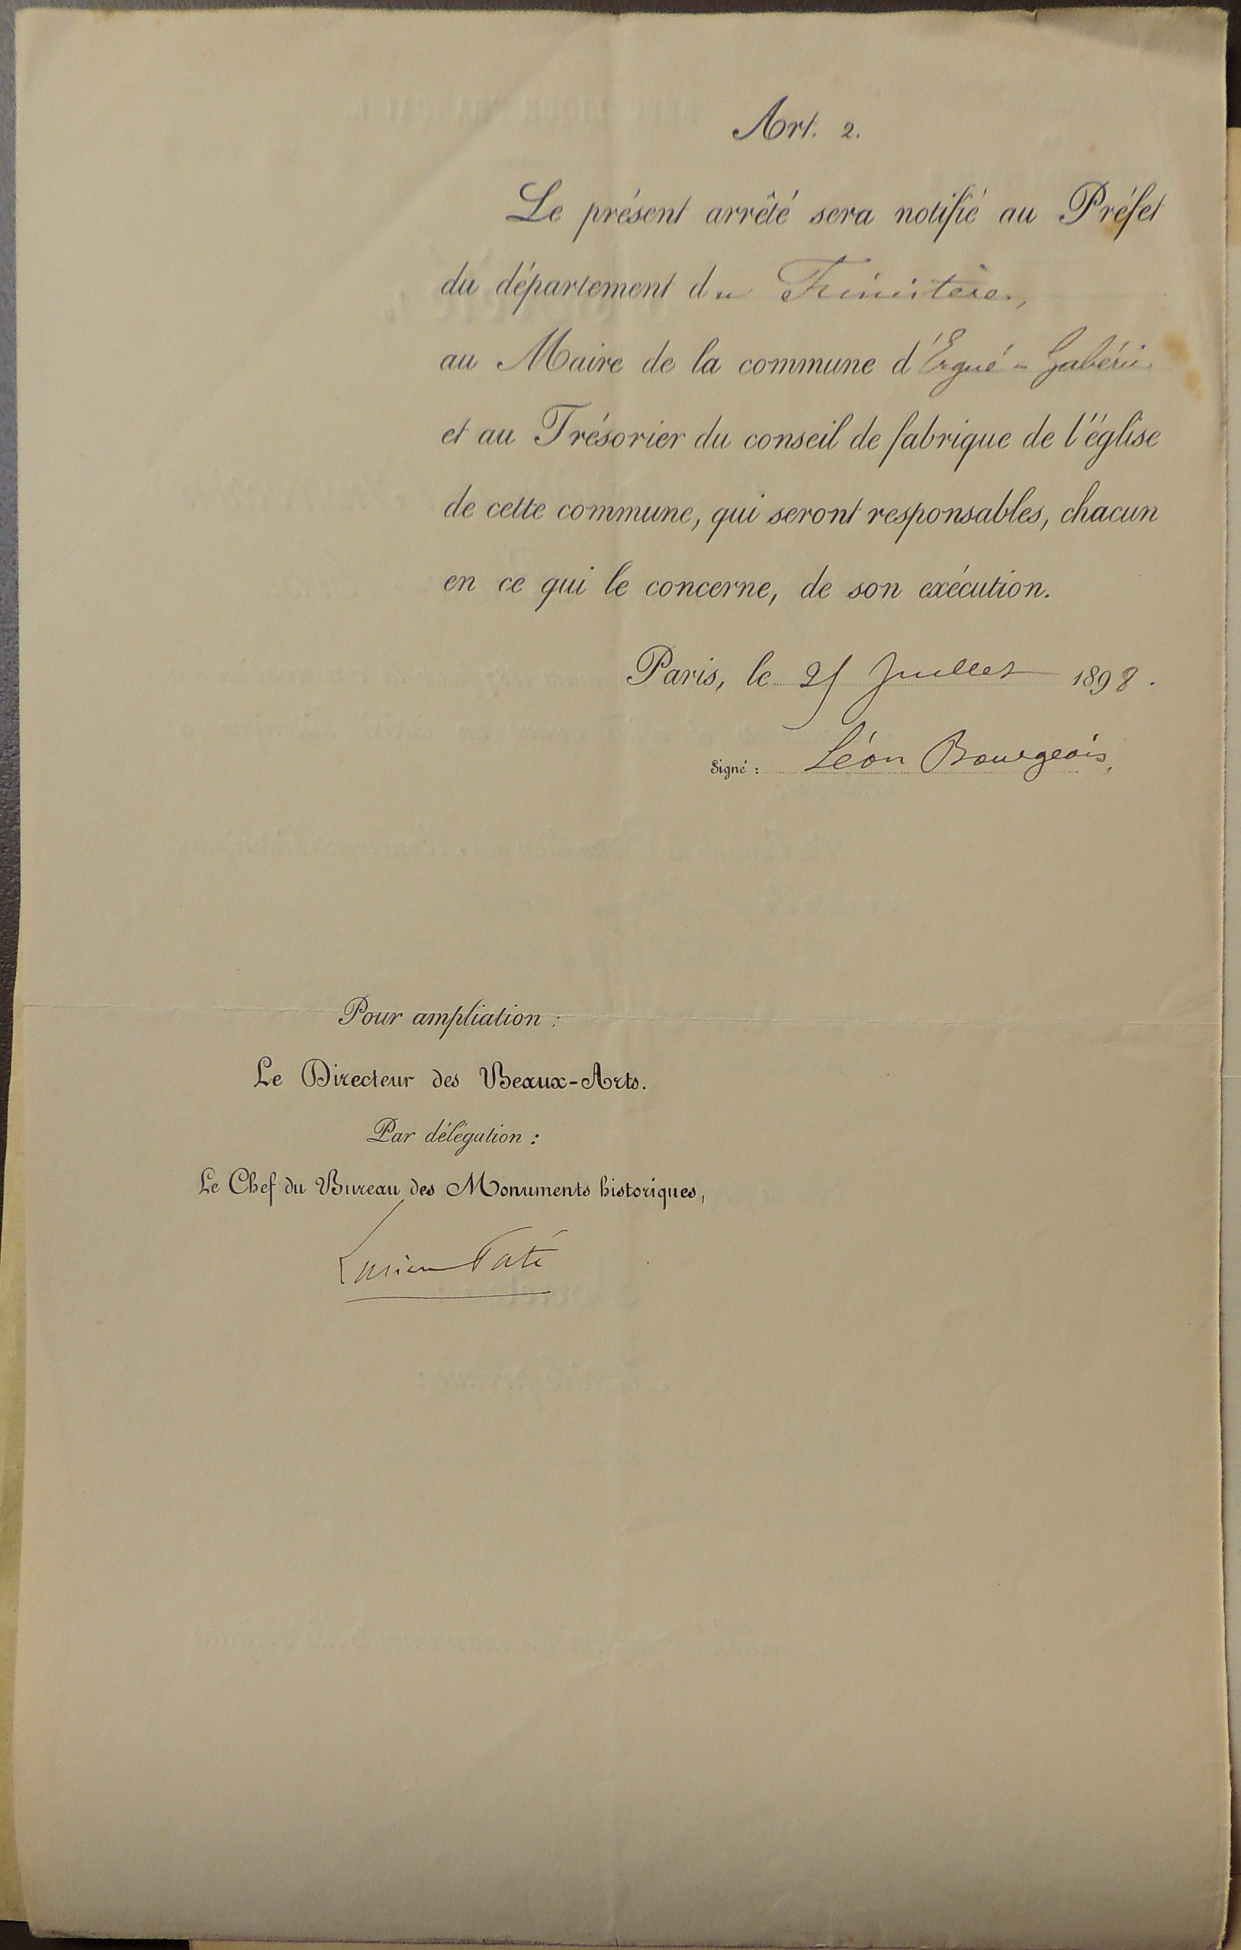 Art. 2.
Le présent arrêté sera notifié au Préfet
du département du Finistère,
au Maire de la commune d'Ergué-Gabéric
et au Trésorier du conseil de fabrique de l'église
de cette commune, qui seront responsables, chacun
en ce qui le concerne, de son exécution.
Paris, le 25 Juillet 1898.
Signé : Léon Bourgeois,
Pour ampliation :
Le Directeur des Beaux-Arts.
Par délégation :
Le Chef du Bureau des Monuments historiques,
Lucien Paté